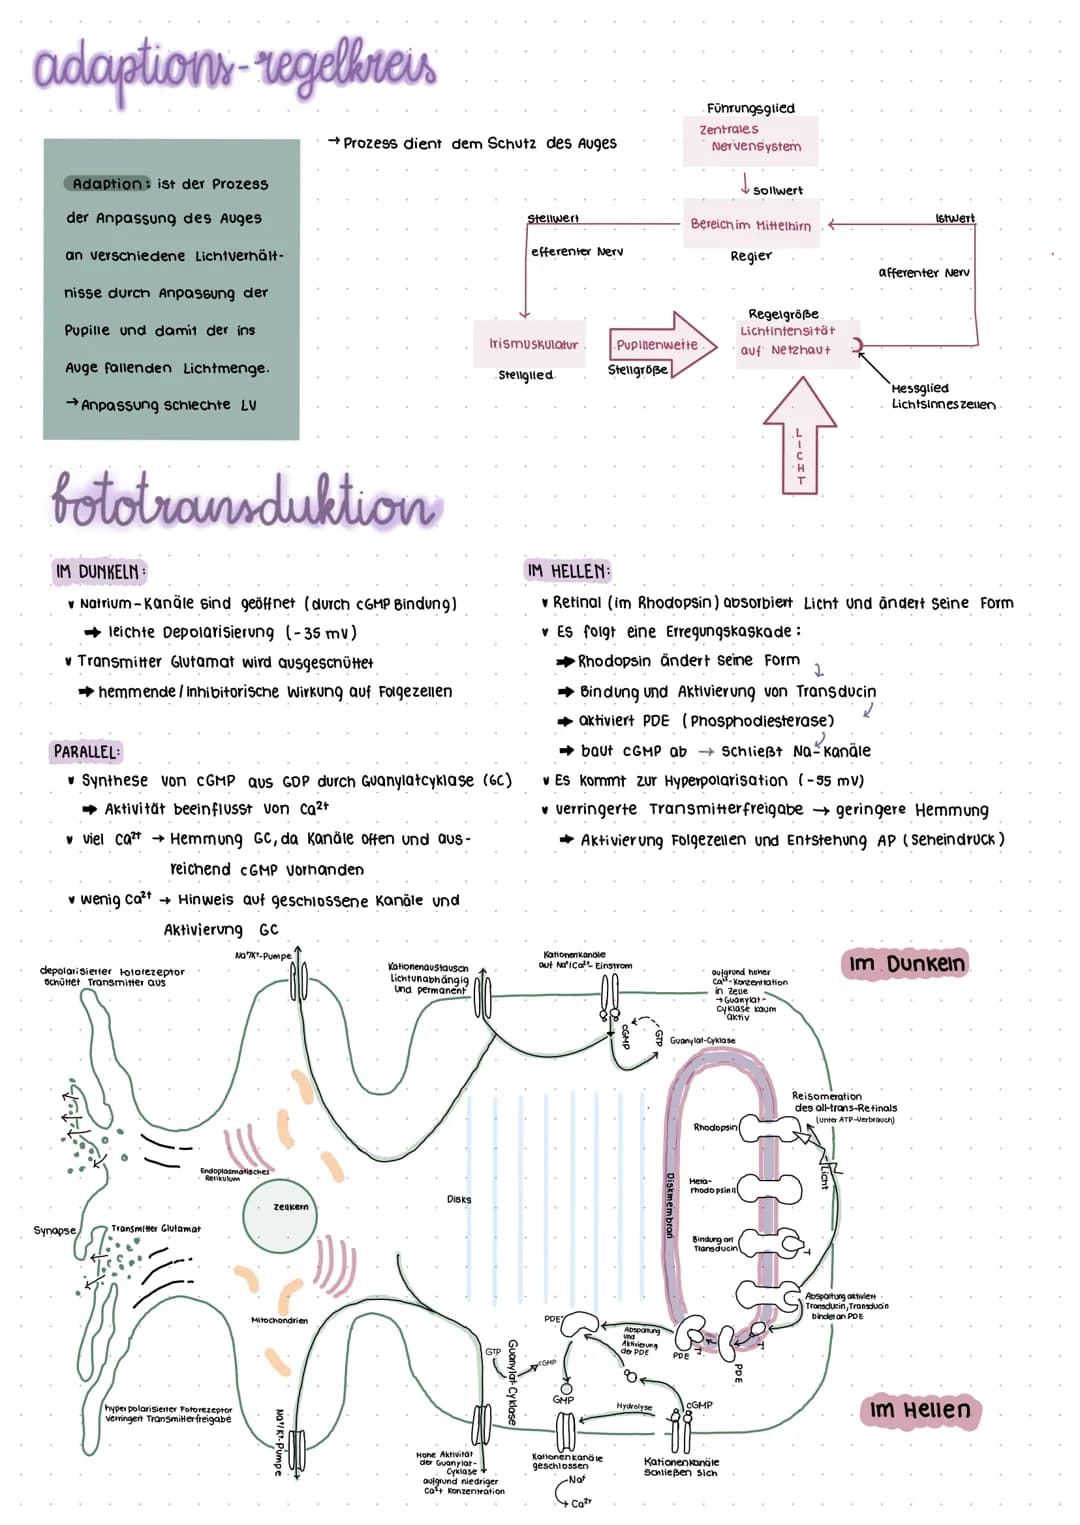 adaptions-regelkreis
Adaption: ist der Prozess
der Anpassung des Auges
an verschiedene Lichtverhält-
nisse durch Anpassung der
Pupille und damit der ins
Auge fallenden Lichtmenge.
→ Anpassung schlechte LV
→ Prozess dient dem Schutz des Auges
Führungsglied
Zentrales
Nervensystem
sollwert
Stellwert
Bereich im Mittelhirn
Istwert
efferenter Nerv
Regler
afferenter Nerv
Regelgröße
Irismuskulatur
Pupillenweite
Lichtintensität
auf Netzhaut
Stellglied
Stellgröße
Messglied
Lichtsinneszellen
LICHT
fototransduktion
IM DUNKELN:
Natrium-Kanäle sind geöffnet (durch cGMP Bindung)
➡ leichte Depolarisierung (-35 mV)
Transmitter Glutamat wird ausgeschüttet
➡ hemmende / Inhibitorische Wirkung auf Folgezellen
PARALLEL:
Synthese von cGMP aus GDP durch Guanylatcyklase (GC)
➡ Aktivität beeinflusst von Ca²⁺
viel Ca²⁺ → Hemmung GC, da Kanäle offen und aus-
reichend cGMP vorhanden
wenig Ca²⁺ → Hinweis auf geschlossene Kanäle und
Aktivierung GC
IM HELLEN:
Retinal (im Rhodopsin) absorbiert Licht und ändert seine Form
Es folgt eine Erregungskaskade:
➡ Rhodopsin ändert seine Form
➡ Bindung und Aktivierung von Transducin
➡ aktiviert PDE (Phosphodiesterase)
➡ baut cGMP ab → schließt Na-Kanäle
Es kommt zur Hyperpolarisation (-55 mV)
verringerte Transmitterfreigabe → geringere Hemmung
➡ Aktivierung Folgezellen und Entstehung AP (Seheindruck)
Im Dunkeln
depolarisierter Fotorezeptor
schüttet Transmitter aus
Na⁺/K⁺-Pumpe
Kationenaustausch
Lichtunabhängig
und permanent
Kationenkanäle
auf Na⁺/Ca²⁺-Einstrom
aufgrund hoher
Ca²⁺-Konzentration
in Zelle
→ Guanylat-
Cyklase kaum
aktiv
cGMP
GTP
Guanylat-Cyklase
Reisomeration
des all-trans-Retinals
(unter ATP-Verbrauch)
Rhodopsin
Licht
Meta-
rhodopsin II
Diskmembran
Bindung an
Transducin
T
Abspaltung aktiviert
Transducin, Transducin
bindet an PDE
Endoplasmatisches
Retikulum
Zellkern
Disks
Synapse
Transmitter Glutamat
Mitochondrien
PDE
Abspaltung
und
Aktivierung
der PDE
PDE
T
PDE
T
GTP
cGMP
Guanylat-Cyklase
GMP
Hydrolyse
cGMP
hyperpolarisierter Fotorezeptor
verringert Transmitterfreigabe
Na⁺/K⁺-Pumpe
Hohe Aktivität
der Guanylat-
Cyklase
aufgrund niedriger
Ca²⁺ Konzentration
Kationenkanäle
geschlossen
Na⁺
Ca²⁺
Kationenkanäle
schließen sich
Im Hellen